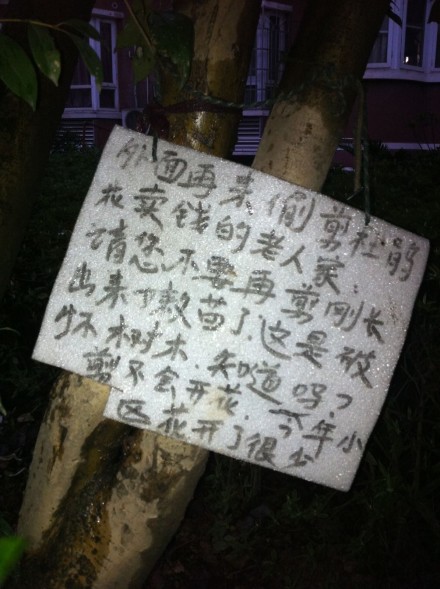 外面再来偷剪杜鹃
花卖钱的老人家:
请您不要再剪刚长
出来嫩苗了.这是被
怀树木.知道吗?
剪不会开花.今年小
区花开了很少